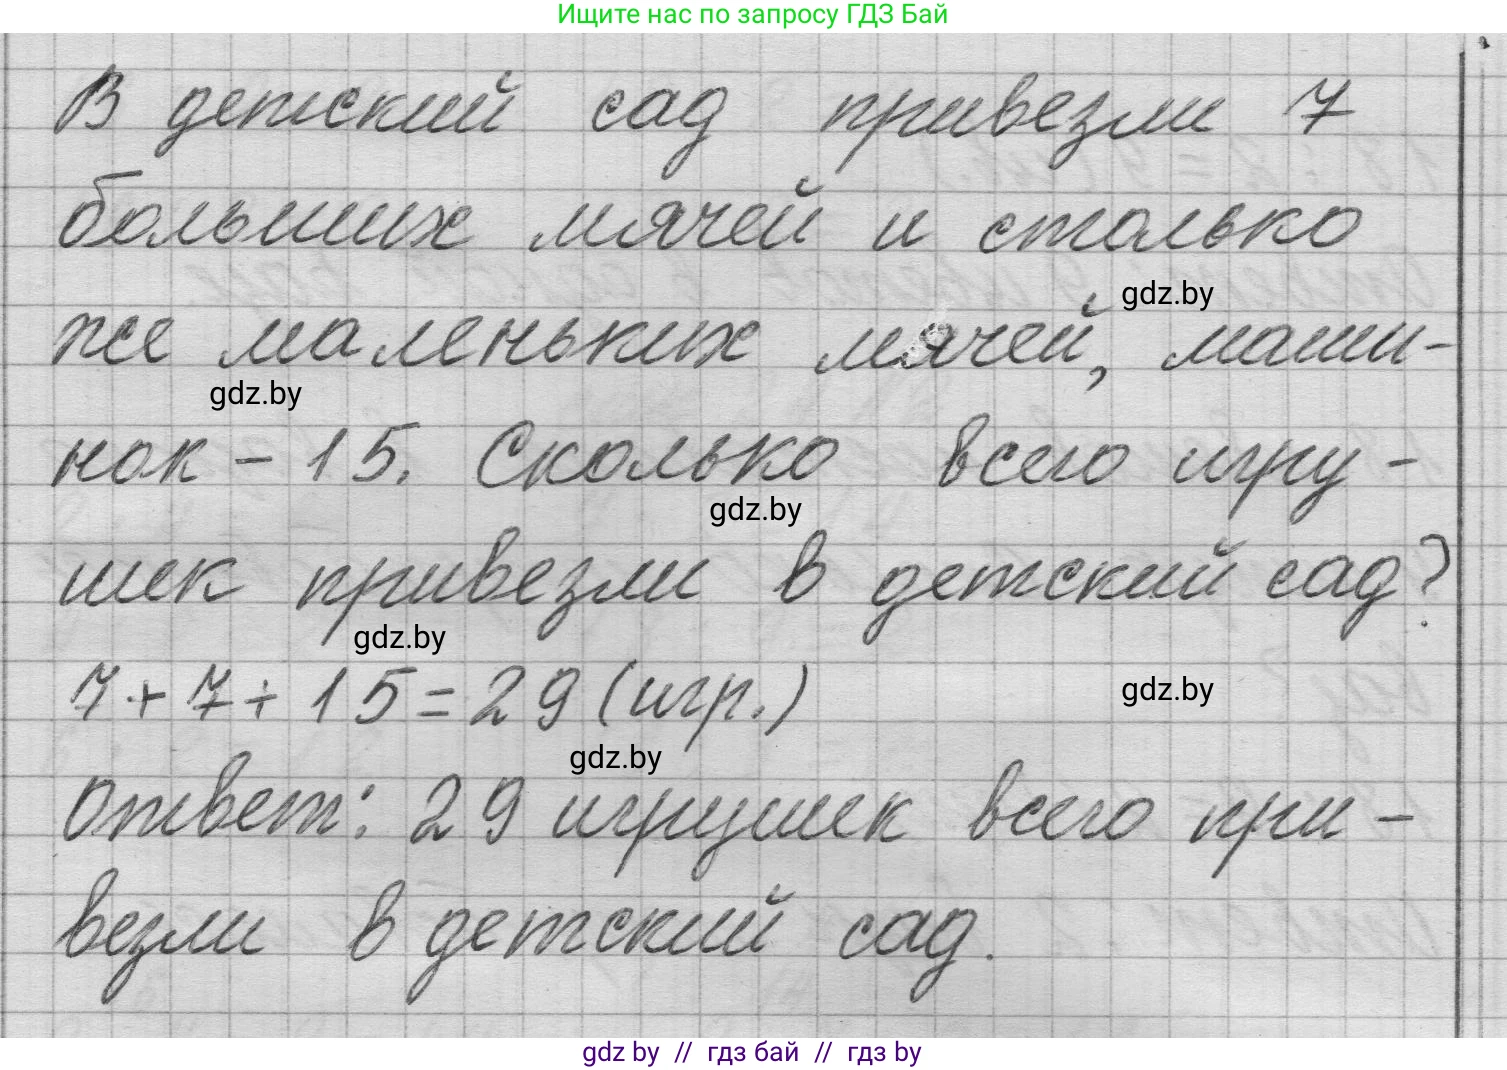 Ищите нас по запросу ГДЗ Бай
В детский сад привезли 7
больших мячей и столько
gdz.by
же маленьких мячей, маши-
gdz.by
нок - 15. Сколько всего игру-
gdz.by
шек привезли в детский сад?
gdz.by
7+7+15=29 (игр.)
gdz.by
gdz.by
Ответ: 29 игрушек всего при-
везли в детский сад.
gdz by // гдз бай // гдз by